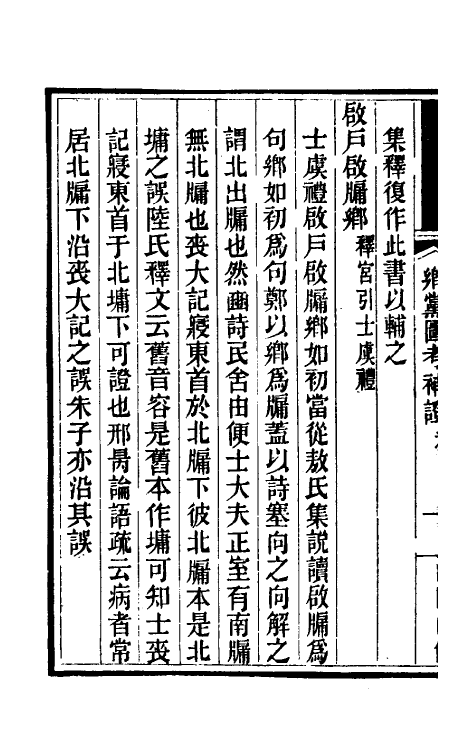 集釋復作此書以輔之
啟戶啟牖鄉 釋宮引士虞禮
士虞禮啟戶啟牖鄉如初當從敖氏集說讀啟牖爲
句鄉如初爲句鄭以鄉爲牖蓋以詩塞向之向解之
謂北出牖也然豳詩民舍由便士大夫正室有南牖
無北牖也喪大記寢東首於北牖下彼北牖本是北
墉之誤陸氏釋文云舊音容是舊本作墉可知士喪
記寢東首于北墉下可證也邢昺論語疏云病者常
居北牖下沿喪大記之誤朱子亦沿其誤
鄉黨圖考補證